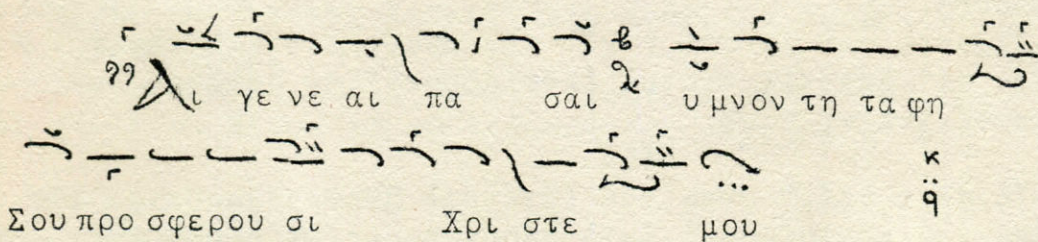 Αι γε νε αι πα σαι υ μνον τη τα φη
Σου προ σφερου σι Χρι στε μου